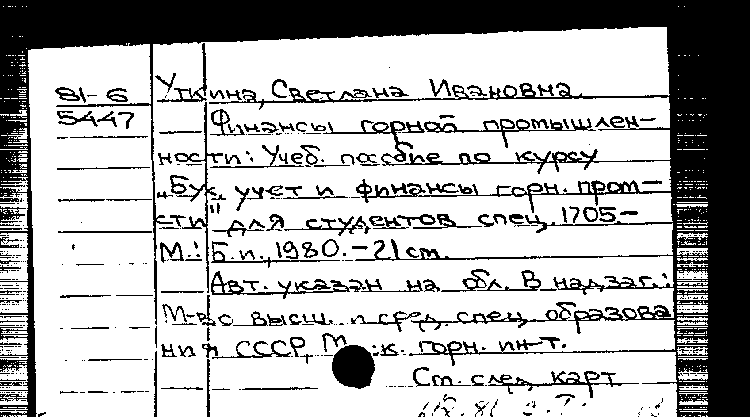 81-6 Уткина, Светлана Ивановна.
5447 Финансы горной промышлен-
ности: Учеб. пособие по курсу
„Бух. учет и финансы горн. пром-
сти" для студентов спец. 1705.-
М.: Б.и., 1980.-21 см.
Авт. указан на обл. В надзаг.:
М-во высш. и сред. спец. образова
ния СССР, М к. горн. ин-т.
См. след. карт